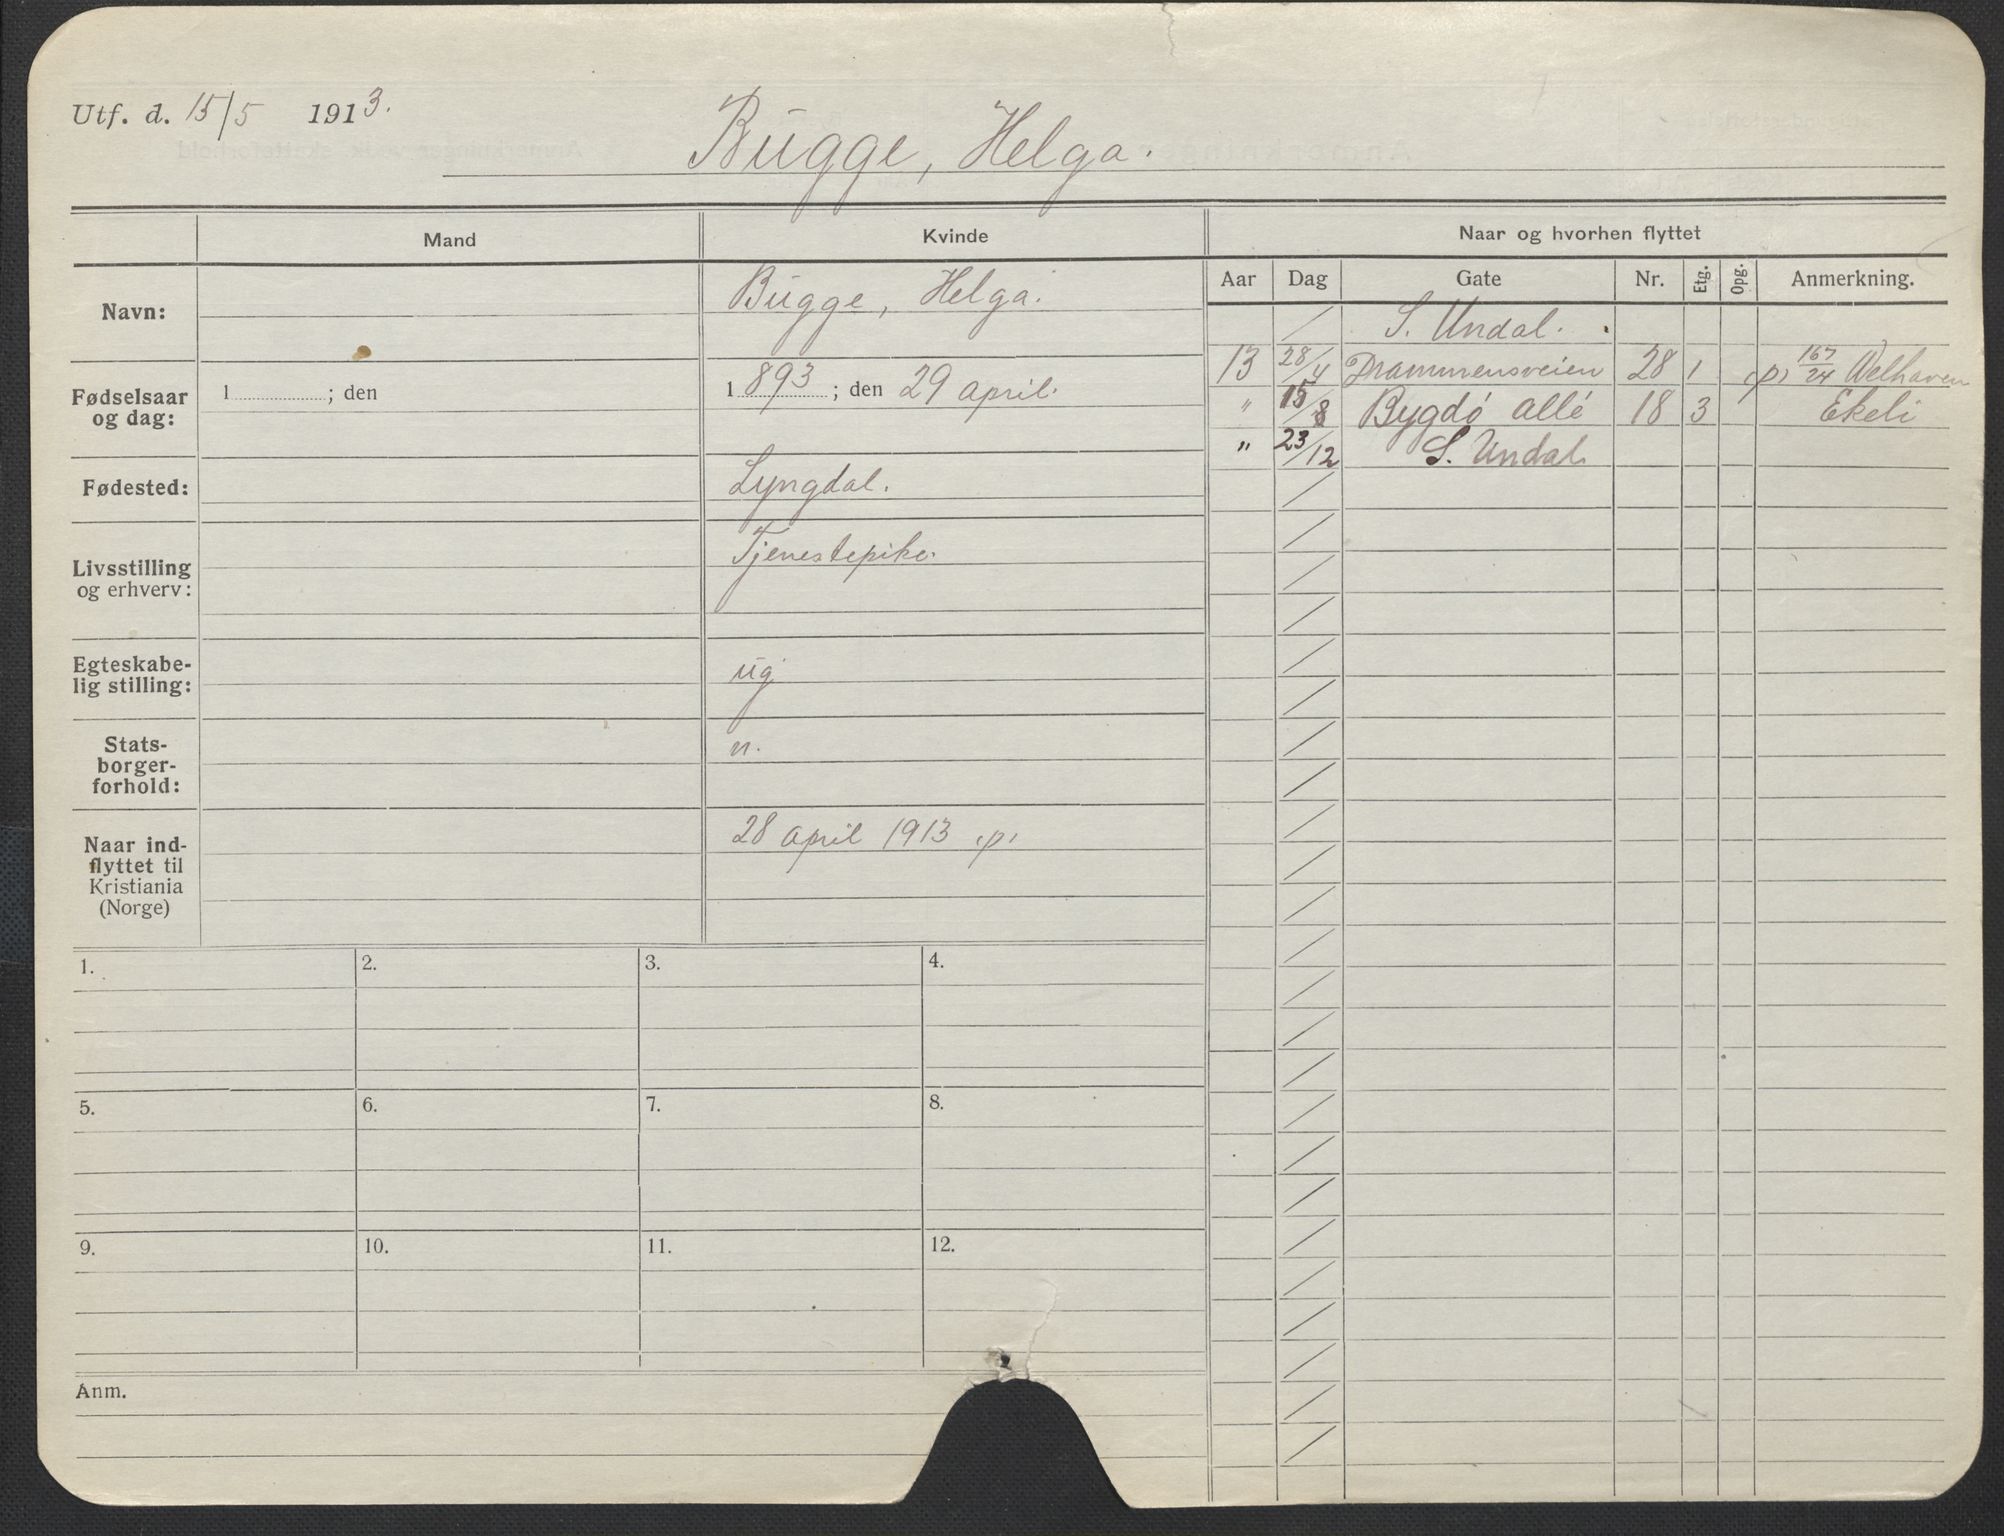 Utf. d. 15/5 1913.
Bugge, Helga.
Mand
Kvinde
Naar og hvorhen flyttet
Aar Dag Gate Nr. Etg. Opg. Anmerkning.
Navn:
Bugge, Helga.
Fødselsaar
og dag:
1 ; den
1893 ; den 29 april.
Fødested:
Lyngdal.
Livsstilling
og erhverv:
Tjenestepike.
Egteskabe-
lig stilling:
ug
Stats-
borger-
forhold:
n.
Naar ind-
flyttet til
Kristiania
(Norge)
28 april 1913 (p)
/ S. Undal.
13 28/4 Drammensveien 28 1 (p) 167/24 Welhaven
" 15/8 Bygdö allé 18 3 Ekeli
" 23/12 S. Undal
1. 2. 3. 4.
5. 6. 7. 8.
9. 10. 11. 12.
Anm.